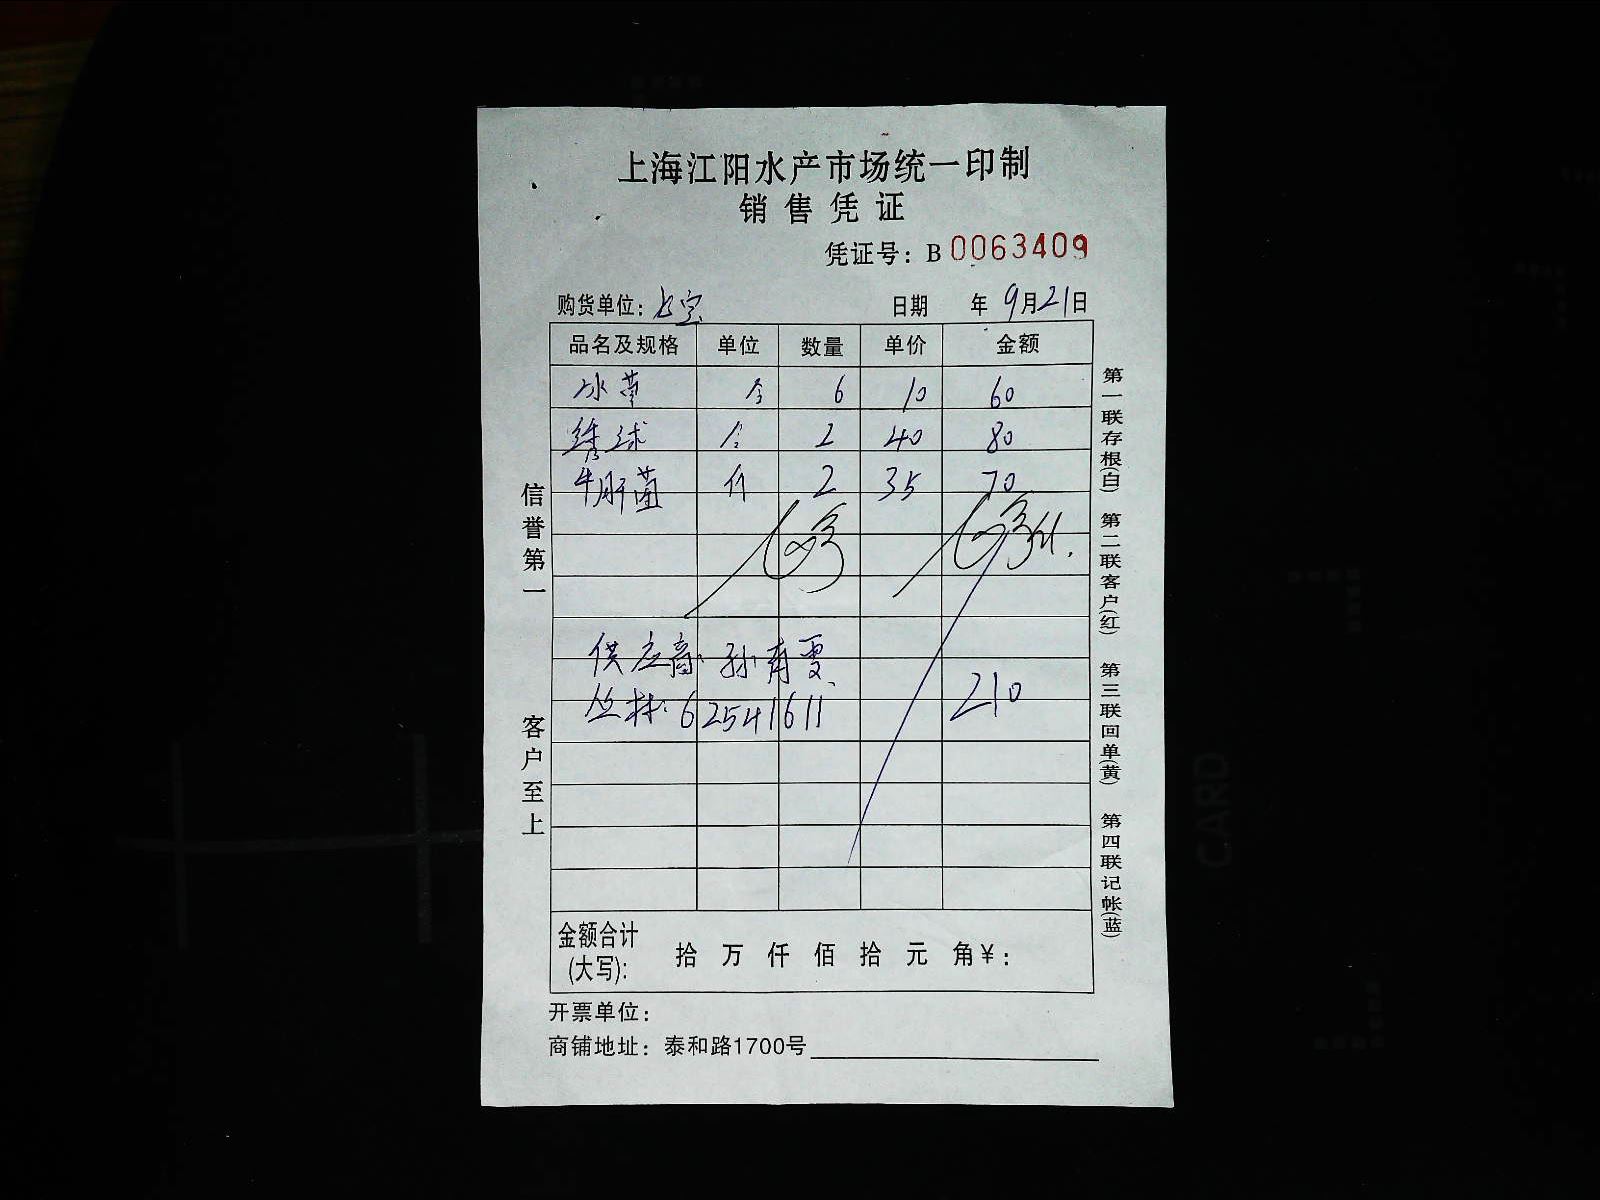 上海江阳水产市场统一印制
销售凭证
凭证号：B 0063409
购货单位：七宝 日期 年 9月21日
品名及规格 单位 数量 单价 金额
冰草 个 6 10 60
绣球 个 2 40 80
牛肝菌 个 2 35 70
供应商：孙有雯
丛林：62541611
210
金额合计(大写)： 拾 万 仟 佰 拾 元 角¥：
开票单位：
商铺地址：泰和路1700号
信誉第一
客户至上
第一联存根(白)
第二联客户(红)
第三联回单(黄)
第四联记帐(蓝)
CARD